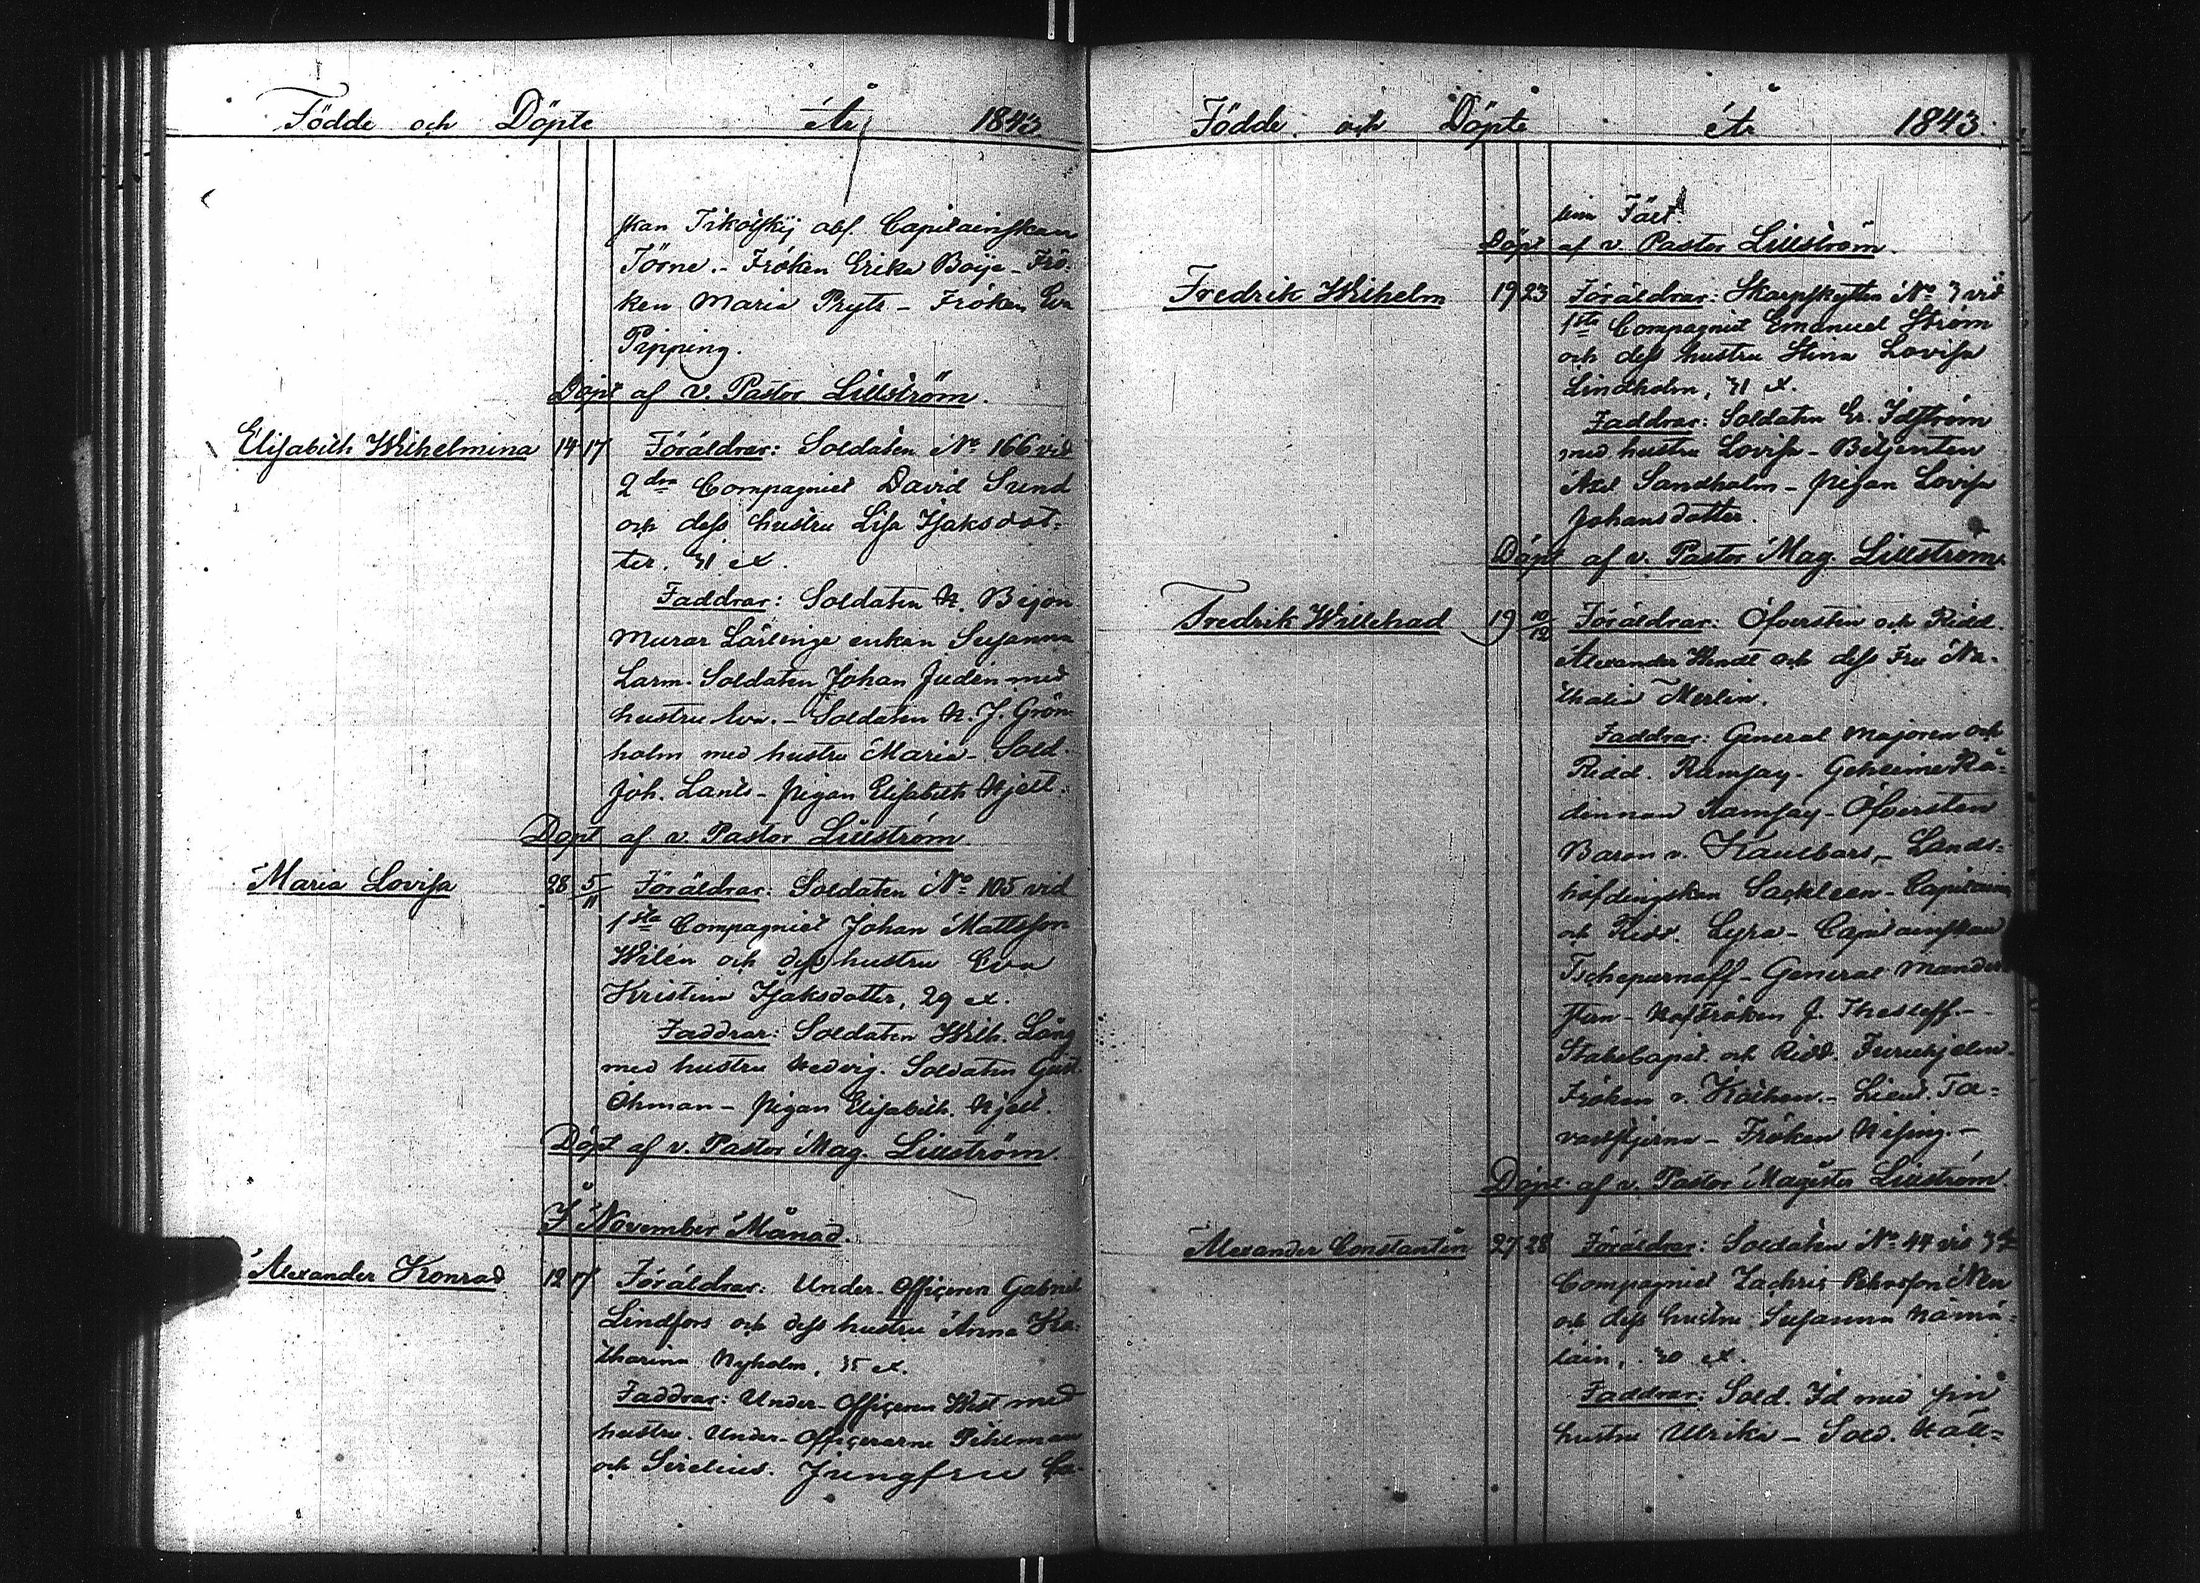 Födde och Döpte År 1843
skan Tikolskij abs. Capitainskan
Törne. - Fröken Erika Boije - Frö-
ken Maria Pryts - Fröken Eva
Pipping.
Döpt af v. Pastor Lillström.
Elisabeth Wilhelmina 14 17 Föräldrar: Soldaten No 166 vid
2dra Compagniet David Sund
och dess hustru Lisa Isaksdot-
ter. 31 et.
Faddrar: Soldaten K. Bejon
Murar Lärlinge enkan Susanna
Larm. Soldaten Johan Judin med
hustru Eva. - Soldaten K. J. Grön-
holm med hustru Maria - Sold.
Joh. Lants - pigan Elisabeth Kjell.
Döpt af v. Pastor Lillström
Maria Lovisa 28 5/11 Föräldrar: Soldaten No 105 vid
1sta Compagniet Johan Mattsson
Wilén och dess hustru Eva
Kristina Isaksdotter, 29 et.
Faddrar: Soldaten Wilh. Lång
med hustru Hedvig. Soldaten Gust.
Öhman - pigan Elisabeth Kjell.
Döpt af v. Pastor Mag. Lillström
I November Månad.
Alexander Konrad 12 17 Föräldrar: Under-Officeren Gabriel
Lindfors och dess hustru Anna Ka-
tharina Nyholm, 35 et.
Faddrar: Under-Officeren West med
hustru. Under-Officerarne Pihlman
och Sirelius. Jungfru Ca-
Födde och Döpte År 1843
lina Fält.
Döpt af v. Pastor Lillström
Fredrik Wilhelm 19 23 Föräldrar: Skarpskytten No 3 vid
1sta Compagniet Emanuel Ström
och dess hustru Stina Lovisa
Lindholm, 31 et.
Faddrar: Soldaten Er. Idström
med hustru Lovisa - Betjenten
Axel Sandholm - pigan Lovisa
Johansdotter.
Döpt af v. Pastor Mag. Lillström.
Fredrik Willehad 19 10/12 Föräldrar: Öfversten och Ridd.
Alexander Wendt och dess Fru Na-
thalia Merlin.
Faddrar: General Majoren och
Ridd. Ramsay - GeheimeRå-
dinnan Ramsay - Öfversten
Baron v. Kaulbars, - Lands-
höfdingskan Sackleen - Capitain
och Ridd. Lyra - Capitainskan
Tschepurnaff - General Mander-
stjern - Hoffröken J. Thesleff. -
StabsCapit. och Ridd. Furuhjelm -
Fröken v. Köthen. - Lieut. Ta-
vaststjerna - Fröken Hising. -
Döpt af v. Pastor Magister Lillström
Alexander Constantin 27 28 Föräldrar: Soldaten No 44 vid 3dje
Compagniet Zachris Petersson Alen
och dess hustru Susanna Hämä-
läin, 30 et.
Faddrar: Sold. Id med sin
hustru Ulrika - Sold. Häll-